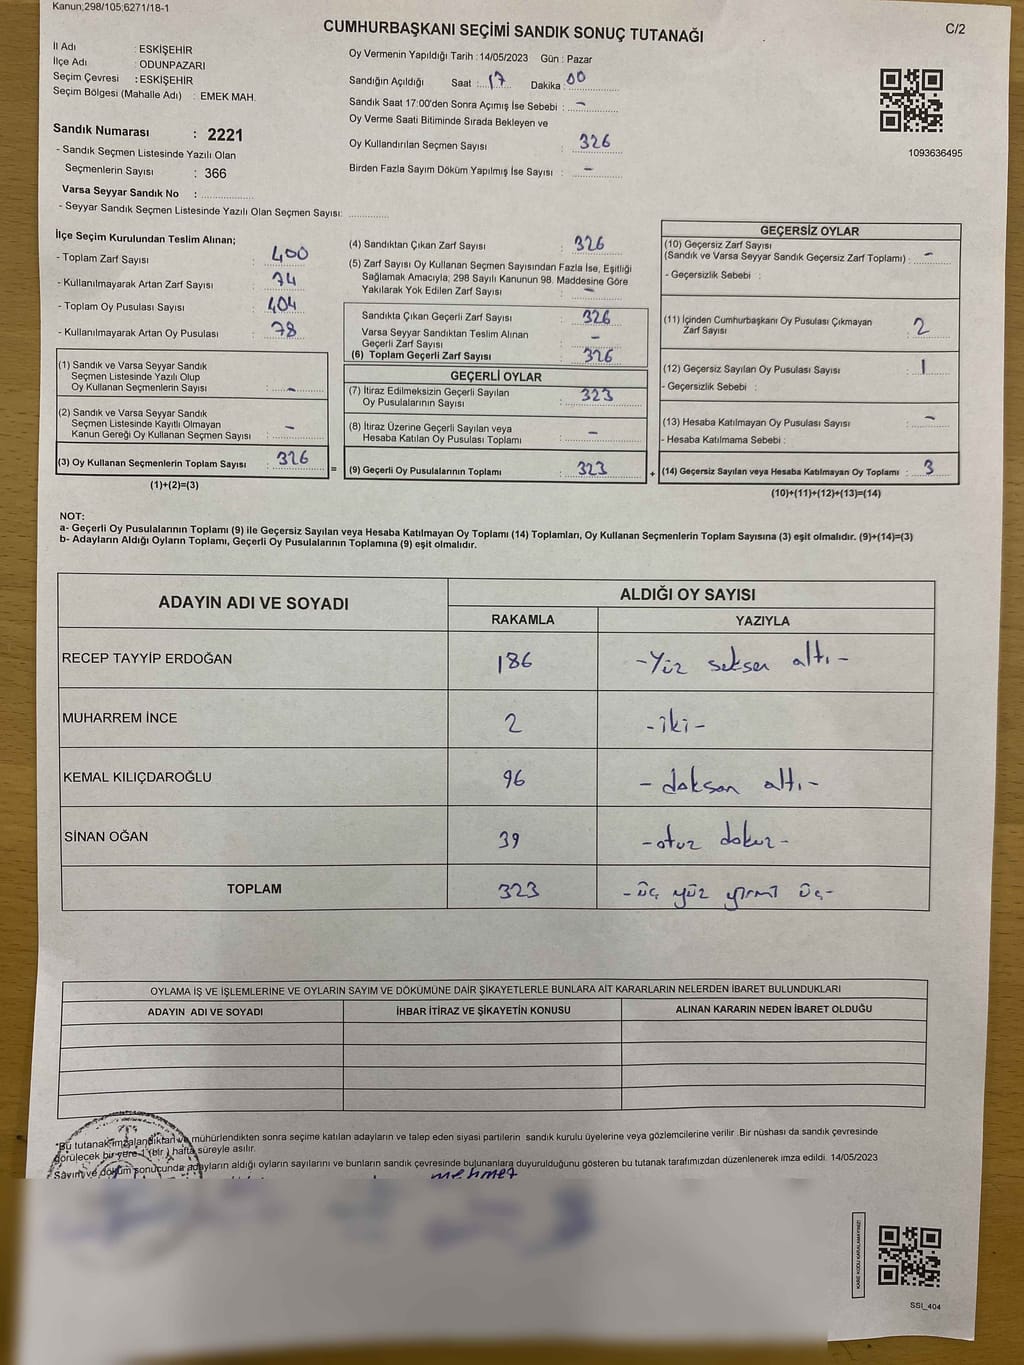 Kanun:298/105;6271/18-1
CUMHURBAŞKANI SEÇİMİ SANDIK SONUÇ TUTANAĞI
C/2
İl Adı : ESKİŞEHİR
İlçe Adı : ODUNPAZARI
Seçim Çevresi : ESKİŞEHİR
Seçim Bölgesi (Mahalle Adı) : EMEK MAH.
Sandık Numarası : 2221
- Sandık Seçmen Listesinde Yazılı Olan
Seçmenlerin Sayısı : 366
Varsa Seyyar Sandık No : ..............
- Seyyar Sandık Seçmen Listesinde Yazılı Olan Seçmen Sayısı: ..............
Oy Vermenin Yapıldığı Tarih : 14/05/2023 Gün : Pazar
Sandığın Açıldığı Saat : 17 Dakika : 00
Sandık Saat 17:00'den Sonra Açımış İse Sebebi : -
Oy Verme Saati Bitiminde Sırada Bekleyen ve
Oy Kullandırılan Seçmen Sayısı : 326
Birden Fazla Sayım Döküm Yapılmış İse Sayısı : -
1093636495
İlçe Seçim Kurulundan Teslim Alınan;
- Toplam Zarf Sayısı : 400
- Kullanılmayarak Artan Zarf Sayısı : 74
- Toplam Oy Pusulası Sayısı : 404
- Kullanılmayarak Artan Oy Pusulası : 78
(1) Sandık ve Varsa Seyyar Sandık
Seçmen Listesinde Yazılı Olup
Oy Kullanan Seçmenlerin Sayısı : -
(2) Sandık ve Varsa Seyyar Sandık
Seçmen Listesinde Kayıtlı Olmayan
Kanun Gereği Oy Kullanan Seçmen Sayısı : -
(3) Oy Kullanan Seçmenlerin Toplam Sayısı : 326
(1)+(2)=(3)
=
(4) Sandıktan Çıkan Zarf Sayısı : 326
(5) Zarf Sayısı Oy Kullanan Seçmen Sayısından Fazla İse, Eşitliği
Sağlamak Amacıyla; 298 Sayılı Kanunun 98. Maddesine Göre
Yakılarak Yok Edilen Zarf Sayısı : -
Sandıkta Çıkan Geçerli Zarf Sayısı : 326
Varsa Seyyar Sandıktan Teslim Alınan
Geçerli Zarf Sayısı : -
(6) Toplam Geçerli Zarf Sayısı : 326
GEÇERLİ OYLAR
(7) İtiraz Edilmeksizin Geçerli Sayılan
Oy Pusulalarının Sayısı : 323
(8) İtiraz Üzerine Geçerli Sayılan veya
Hesaba Katılan Oy Pusulası Toplamı : -
(9) Geçerli Oy Pusulalarının Toplamı : 323
+
GEÇERSİZ OYLAR
(10) Geçersiz Zarf Sayısı
(Sandık ve Varsa Seyyar Sandık Geçersiz Zarf Toplamı) : -
- Geçersizlik Sebebi :
(11) İçinden Cumhurbaşkanı Oy Pusulası Çıkmayan
Zarf Sayısı : 2
(12) Geçersiz Sayılan Oy Pusulası Sayısı : 1
- Geçersizlik Sebebi :
(13) Hesaba Katılmayan Oy Pusulası Sayısı : -
- Hesaba Katılmama Sebebi :
(14) Geçersiz Sayılan veya Hesaba Katılmayan Oy Toplamı : 3
(10)+(11)+(12)+(13)=(14)
NOT:
a- Geçerli Oy Pusulalarının Toplamı (9) ile Geçersiz Sayılan veya Hesaba Katılmayan Oy Toplamı (14) Toplamları, Oy Kullanan Seçmenlerin Toplam Sayısına (3) eşit olmalıdır. (9)+(14)=(3)
b- Adayların Aldığı Oyların Toplamı, Geçerli Oy Pusulalarının Toplamına (9) eşit olmalıdır.
ADAYIN ADI VE SOYADI
ALDIĞI OY SAYISI
RAKAMLA YAZIYLA
RECEP TAYYİP ERDOĞAN 186 -Yüz seksen altı-
MUHARREM İNCE 2 -iki-
KEMAL KILIÇDAROĞLU 96 -doksan altı-
SİNAN OĞAN 39 -otuz dokuz-
TOPLAM 323 -üç yüz yirmi üç-
OYLAMA İŞ VE İŞLEMLERİNE VE OYLARIN SAYIM VE DÖKÜMÜNE DAİR ŞİKAYETLERLE BUNLARA AİT KARARLARIN NELERDEN İBARET BULUNDUKLARI
ADAYIN ADI VE SOYADI İHBAR İTİRAZ VE ŞİKAYETİN KONUSU ALINAN KARARIN NEDEN İBARET OLDUĞU
*Bu tutanak imzalandıktan ve mühürlendikten sonra seçime katılan adayların ve talep eden siyasi partilerin sandık kurulu üyelerine veya gözlemcilerine verilir. Bir nüshası da sandık çevresinde
görülecek bir yere 1 (bir) hafta süreyle asılır.
Sayım ve döküm sonucunda adayların aldığı oyların sayılarını ve bunların sandık çevresinde bulunanlara duyurulduğunu gösteren bu tutanak tarafımızdan düzenlenerek imza edildi. 14/05/2023
mehmet
KARE KODU KARALAMAYINIZ!
SSI_404